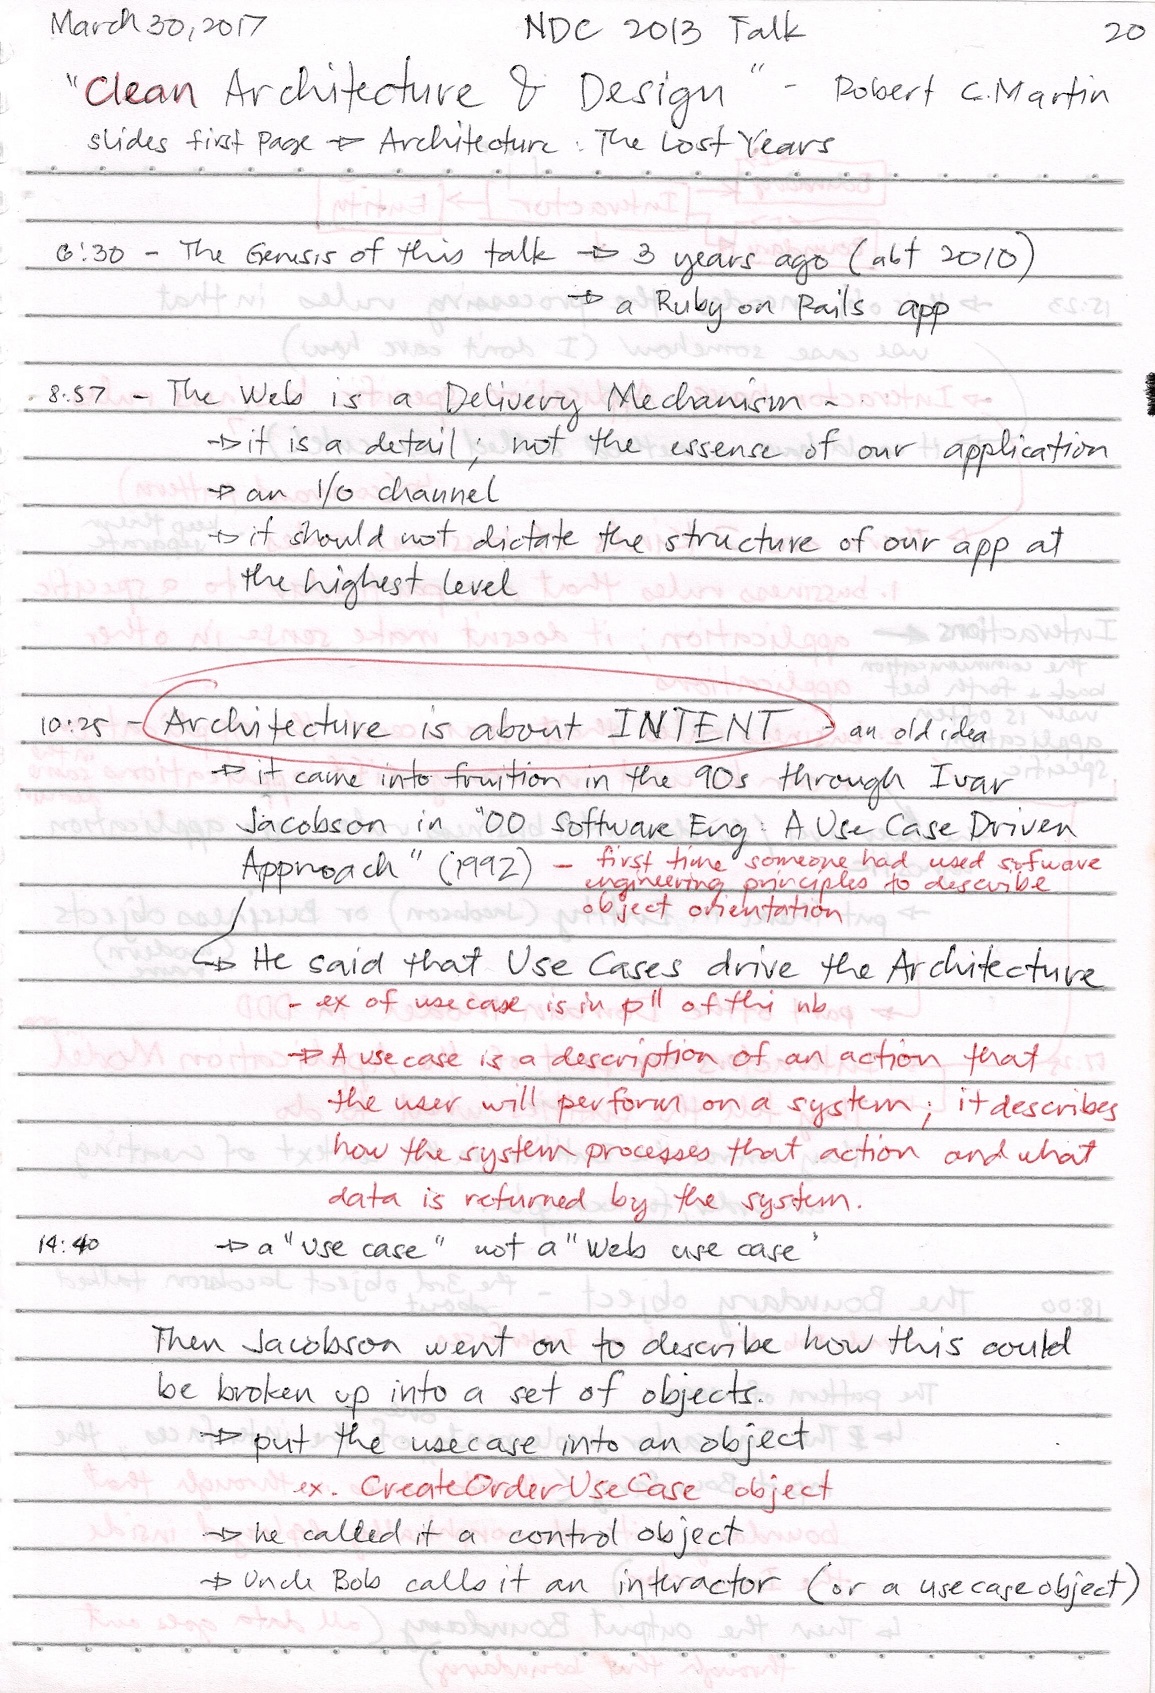 March 30, 2017 NDC 2013 Talk 20
"Clean Architecture & Design" - Robert C. Martin
slides first page → Architecture: The Lost Years
6:30 - The Genesis of this talk → 3 years ago (abt 2010)
→ a Ruby on Rails app
8:57 - The Web is a Delivery Mechanism -
→ it is a detail; not the essense of our application
→ an I/O channel
→ it should not dictate the structure of our app at
the highest level
10:25 - Architecture is about INTENT - an old idea
→ it came into fruition in the 90s through Ivar
Jacobson in "OO Software Eng: A Use Case Driven
Approach" (1992) - first time someone had used sofware
engineering principles to describe
object orientation
→ He said that Use Cases drive the Architecture
- ex of use case is in p11 of this nb
→ A use case is a description of an action that
the user will perform on a system; it describes
how the system processes that action and what
data is returned by the system.
14:40 → a "use case" not a "Web use case"
Then Jacobson went on to describe how this could
be broken up into a set of objects.
→ put the usecase into an object
ex. CreateOrderUseCase object
→ he called it a control object
→ Uncle Bob calls it an interactor (or a use case object)